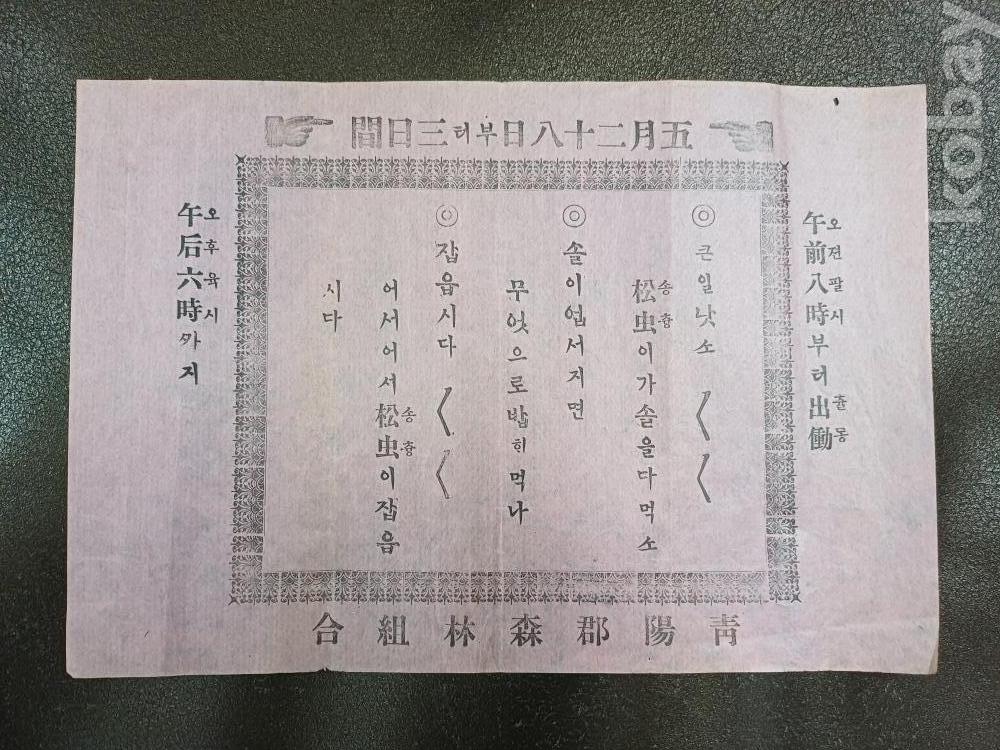 五月二十八日부터三日間
午前八時부터出働
오젼팔시 츌동
◎큰일낫소 〱〱
松虫이가솔을다먹소
송츙
◎솔이업서지면
무엇으로밥히먹나
◎잡읍시다 〱〱
어서어서松虫이잡읍
송츙
시다
午后六時까지
오후육시
靑陽郡森林組合
kobay